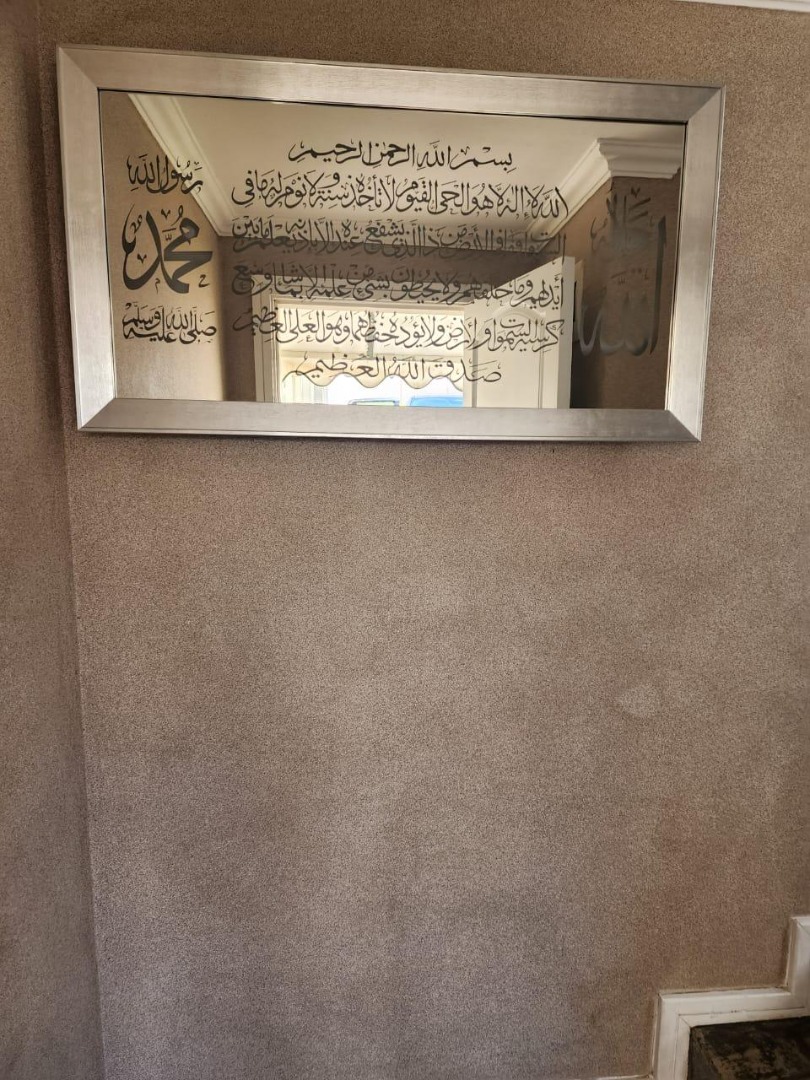 جل جلاله
الله
بسم الله الرحمن الرحيم
الله لا إله إلا هو الحي القيوم لا تأخذه سنة ولا نوم له ما في
السموات وما في الأرض من ذا الذي يشفع عنده إلا بإذنه يعلم ما بين
أيديهم وما خلفهم ولا يحيطون بشيء من علمه إلا بما شاء وسع
كرسيه السموات والأرض ولا يؤده حفظهما وهو العلي العظيم
صدق الله العظيم
رسول الله
محمد
صلى الله عليه وسلم